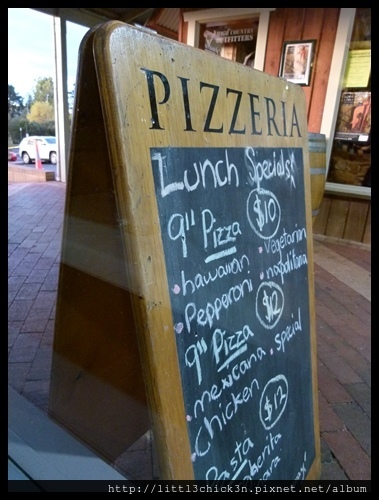 HIGH COUNTRY
OUTFITTERS
PIZZERIA
Lunch Specials
9" Pizza $10
• hawaiian • vegetarian
• Pepperoni • napolitana
9" Pizza $12
• mexicana • special
• Chicken
Pasta $12
http://littl3chick3n.pixnet.net/album